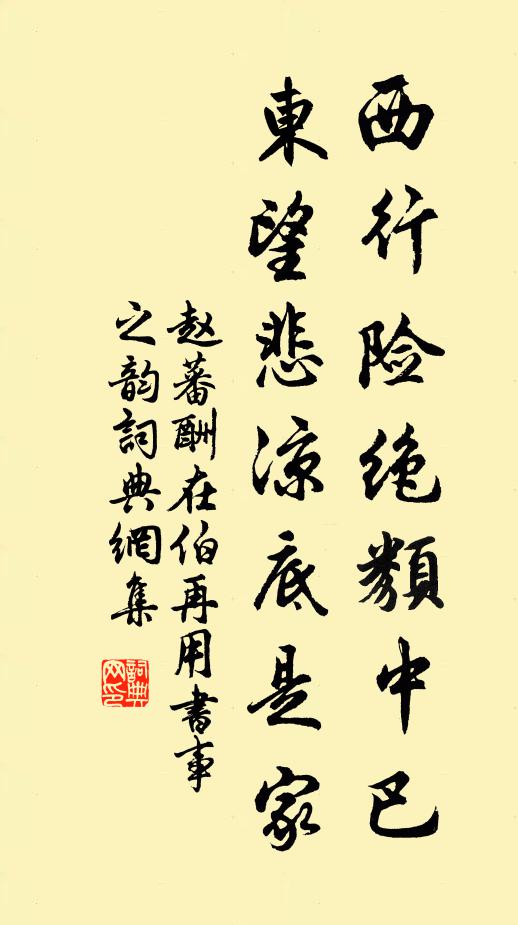 西行险绝類中巴
東望悲涼底是家
赵蕃酬在伯再用書事
之韵詞典網集
詞典网印